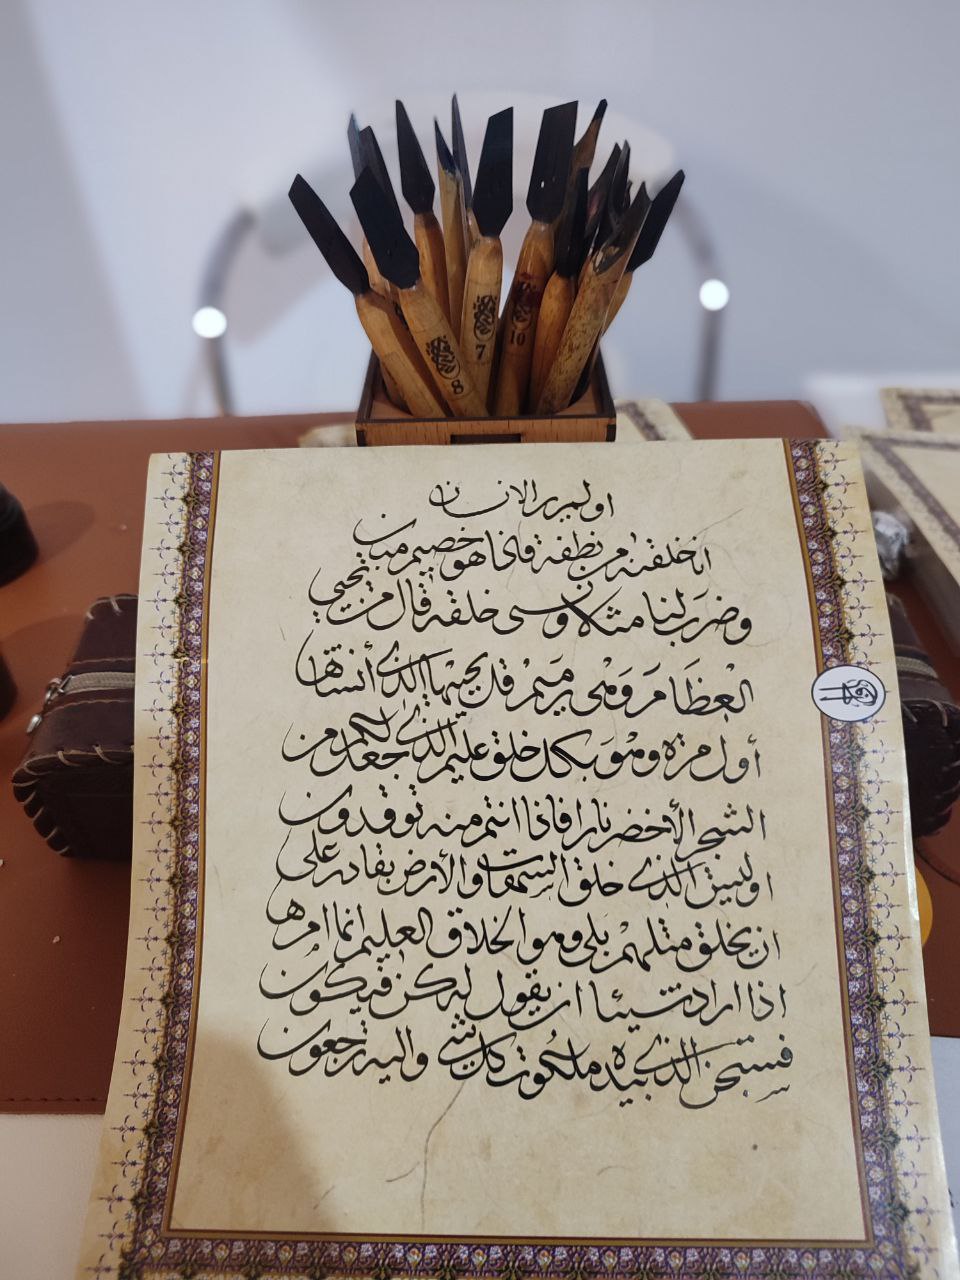 7
10
8
اولم ير الانسان
انا خلقنه من نطفة فاذا هو خصيم مبين
وضرب لنا مثلا ونسى خلقه قال من يحيي
العظام وهى رميم قل يحييها الذي أنشأها
أول مرة وهو بكل خلق عليم الذي جعل لكم من
الشجر الأخضر نارا فاذا انتم منه توقدون
اوليس الذي خلق السموات والأرض بقادر على
ان يخلق مثلهم بلى وهو الخلاق العليم انما امره
اذا اراد شيئا ان يقول له كن فيكون
فسبحن الذي بيده ملكوت كل شيء واليه ترجعون